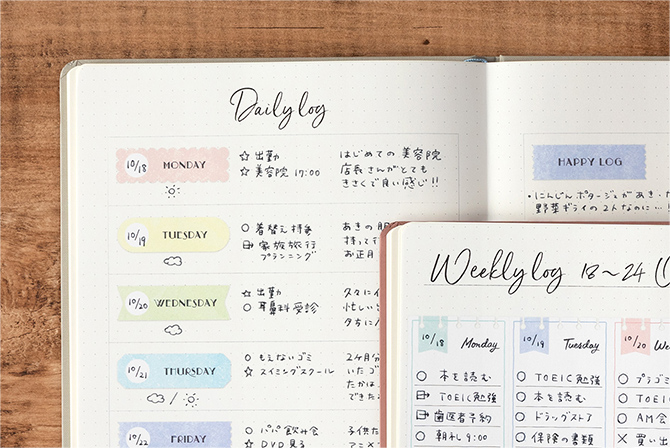 Daily log
10/18 MONDAY
☆ 出勤
☆ 美容院 17:00
はじめての 美容院
店長さんがとても
きさくで良い感じ!!
10/19 TUESDAY
○ 着替え持参
家族旅行
プランニング
あきの服
持って行
お正月
10/20 WEDNESDAY
☆ 出勤
○ 耳鼻科受診
久々に
忙しい
夕方に
10/21 THURSDAY
○ もえないゴミ
☆ スイミングスクール
2ヶ月分
いたゴ
たかは
できた
10/22 FRIDAY
○ パパ飲み会
☆ DVD見る
子供た
アニメ
HAPPY LOG
・にんじんポタージュがあき・た
野菜ギライの2人なのに…!
Weekly log 18~24 (
10/18 Monday
○ 本を読む
TOEIC勉強
歯医者予約
○ 朝礼 9:00
10/19 Tuesday
○ TOEIC勉強
○ 本を読む
○ ドラッグストア
○ 保険の書類
10/20 We
○ プラゴミ
○ TO
○ AM会
× 買い出